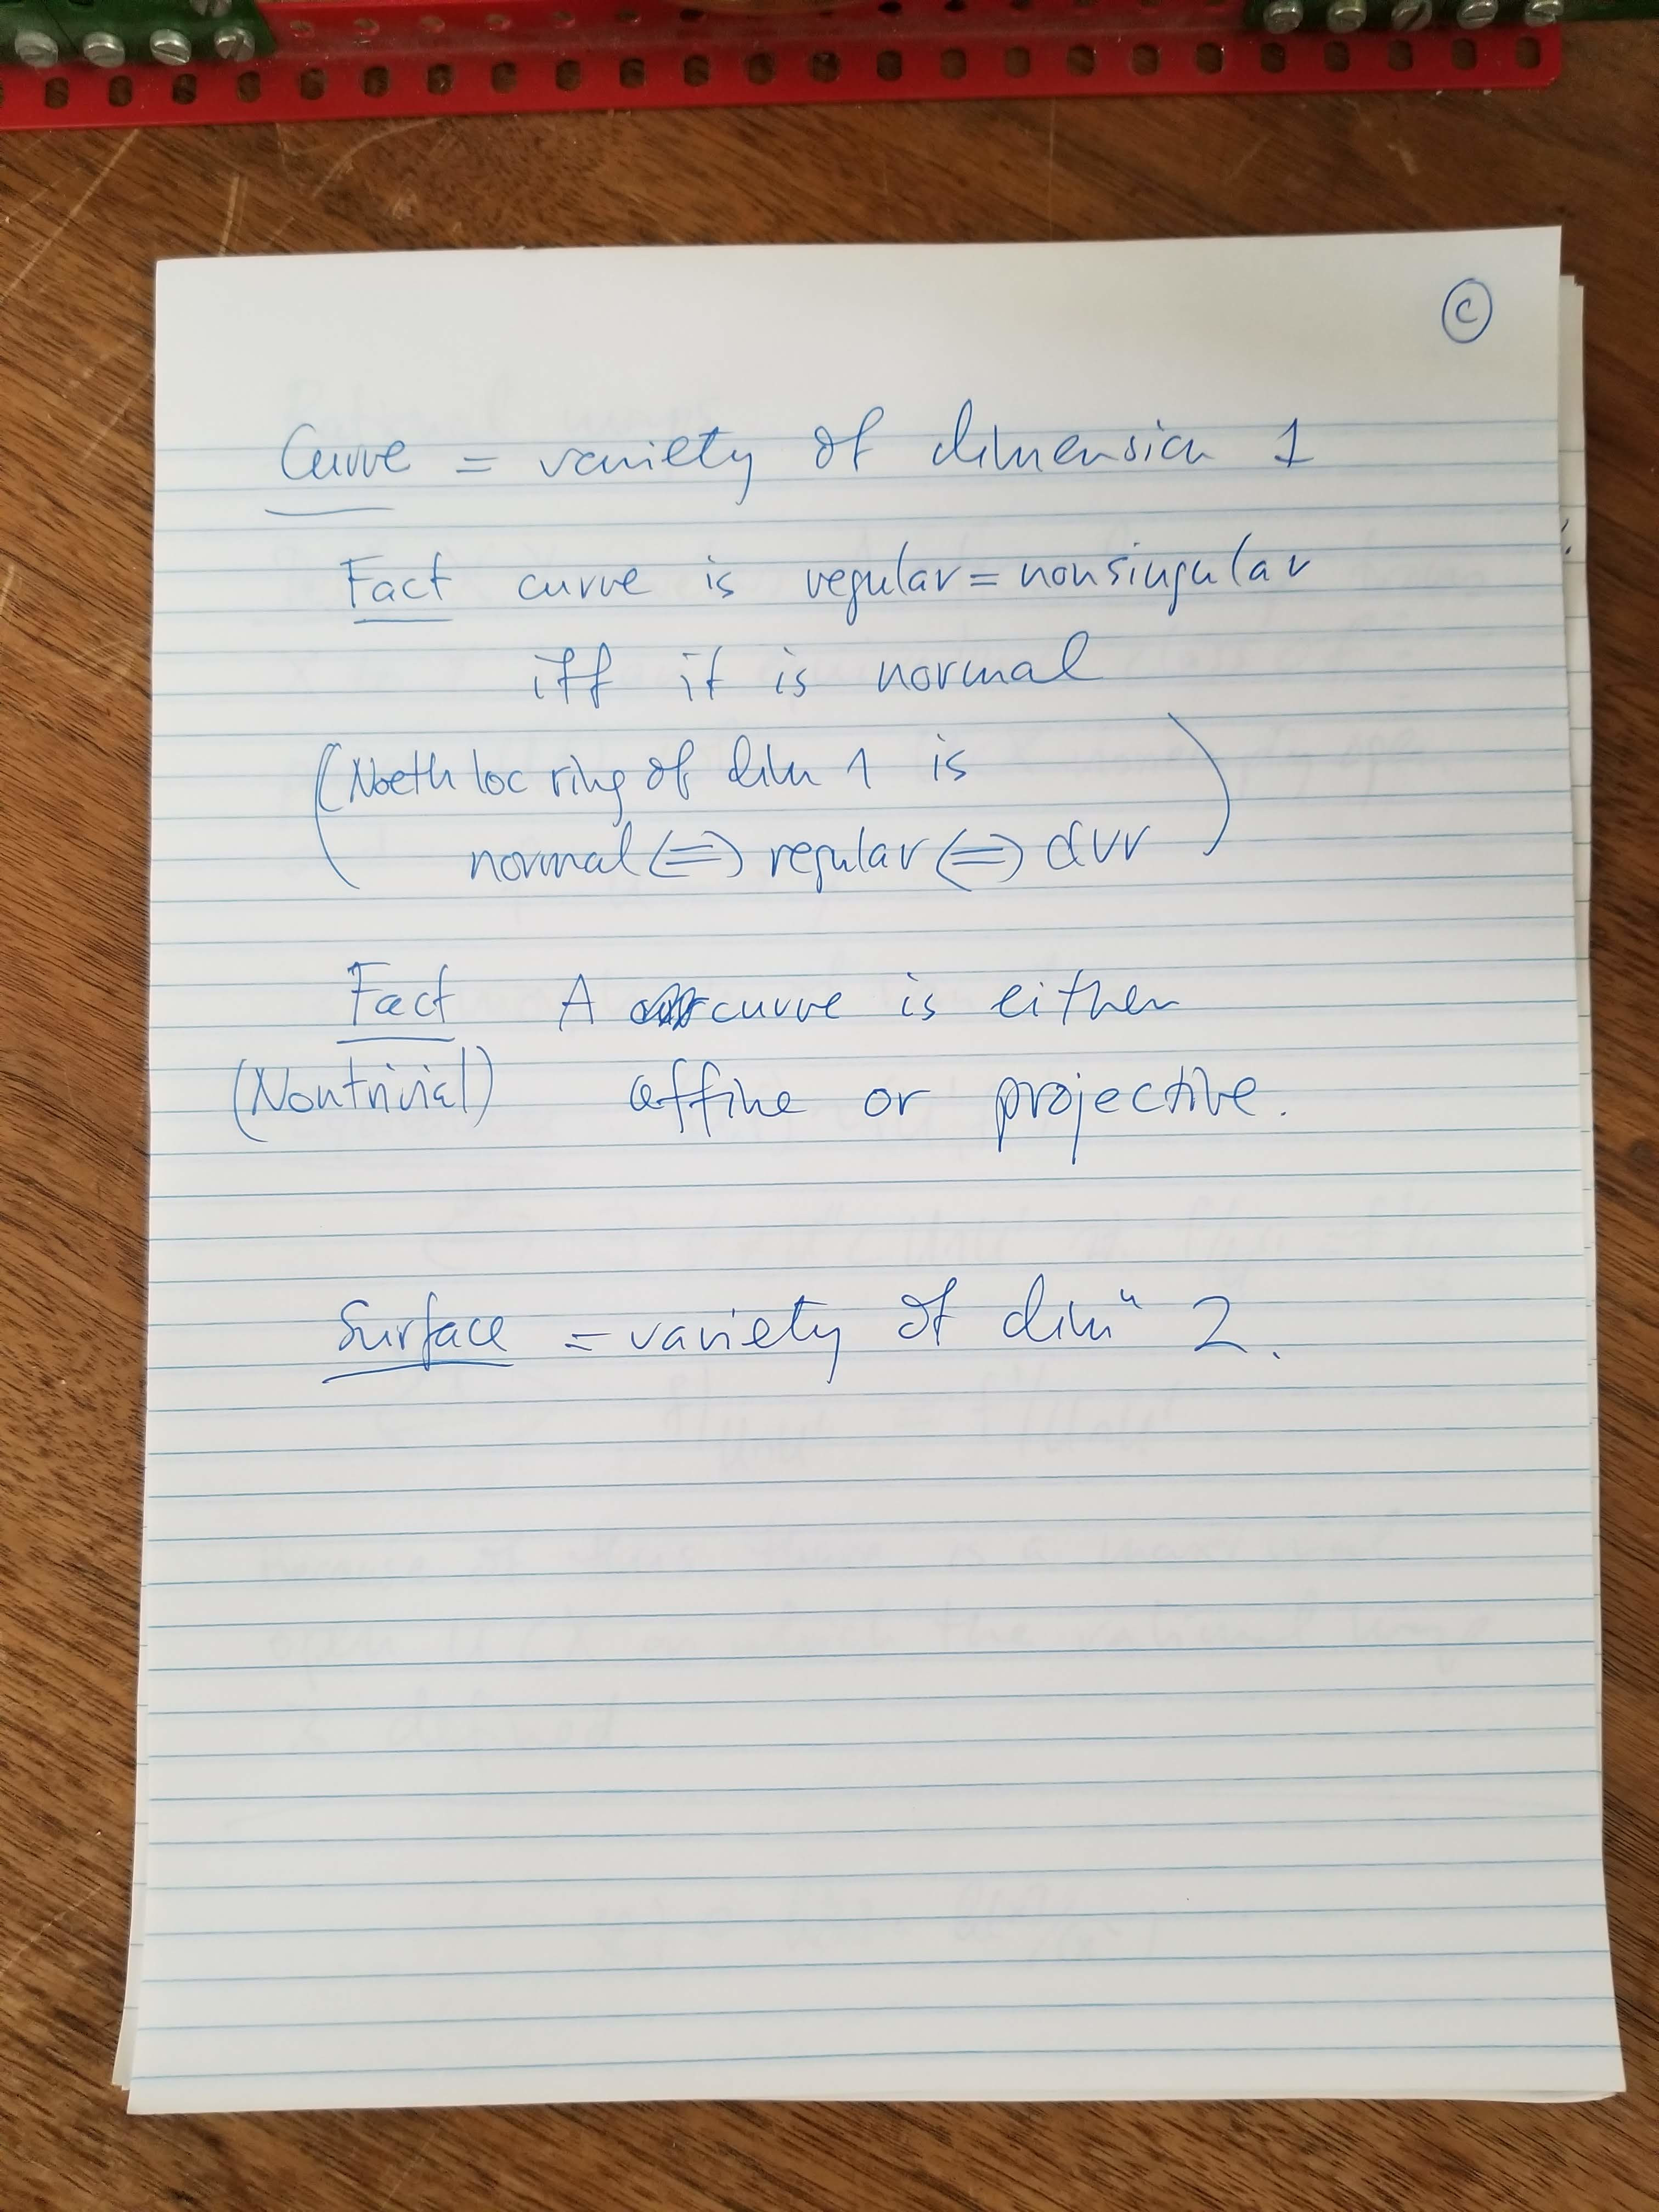 ©
Curve = variety of dimension 1
Fact curve is regular = nonsingular
iff it is normal
(Noeth loc ring of dim 1 is
normal ⇔ regular ⇔ dvr)
Fact A curve is either
(Nontrivial) affine or projective.
Surface = variety of dimⁿ 2.